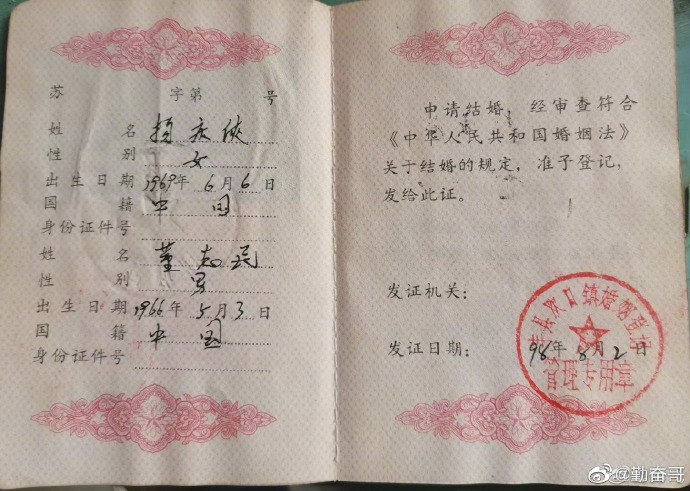 苏 字第 号
姓名 杨庆侠
性别 女
出生日期 1969年6月6日
国籍 中国
身份证件号
姓名 董志民
性别 男
出生日期 1966年5月3日
国籍 中国
身份证件号
申请结婚，经审查符合
《中华人民共和国婚姻法》
关于结婚的规定，准予登记，
发给此证。
发证机关：
发证日期： 98年8月2日
丰县欢口镇婚姻登记
管理专用章
@勤奋哥